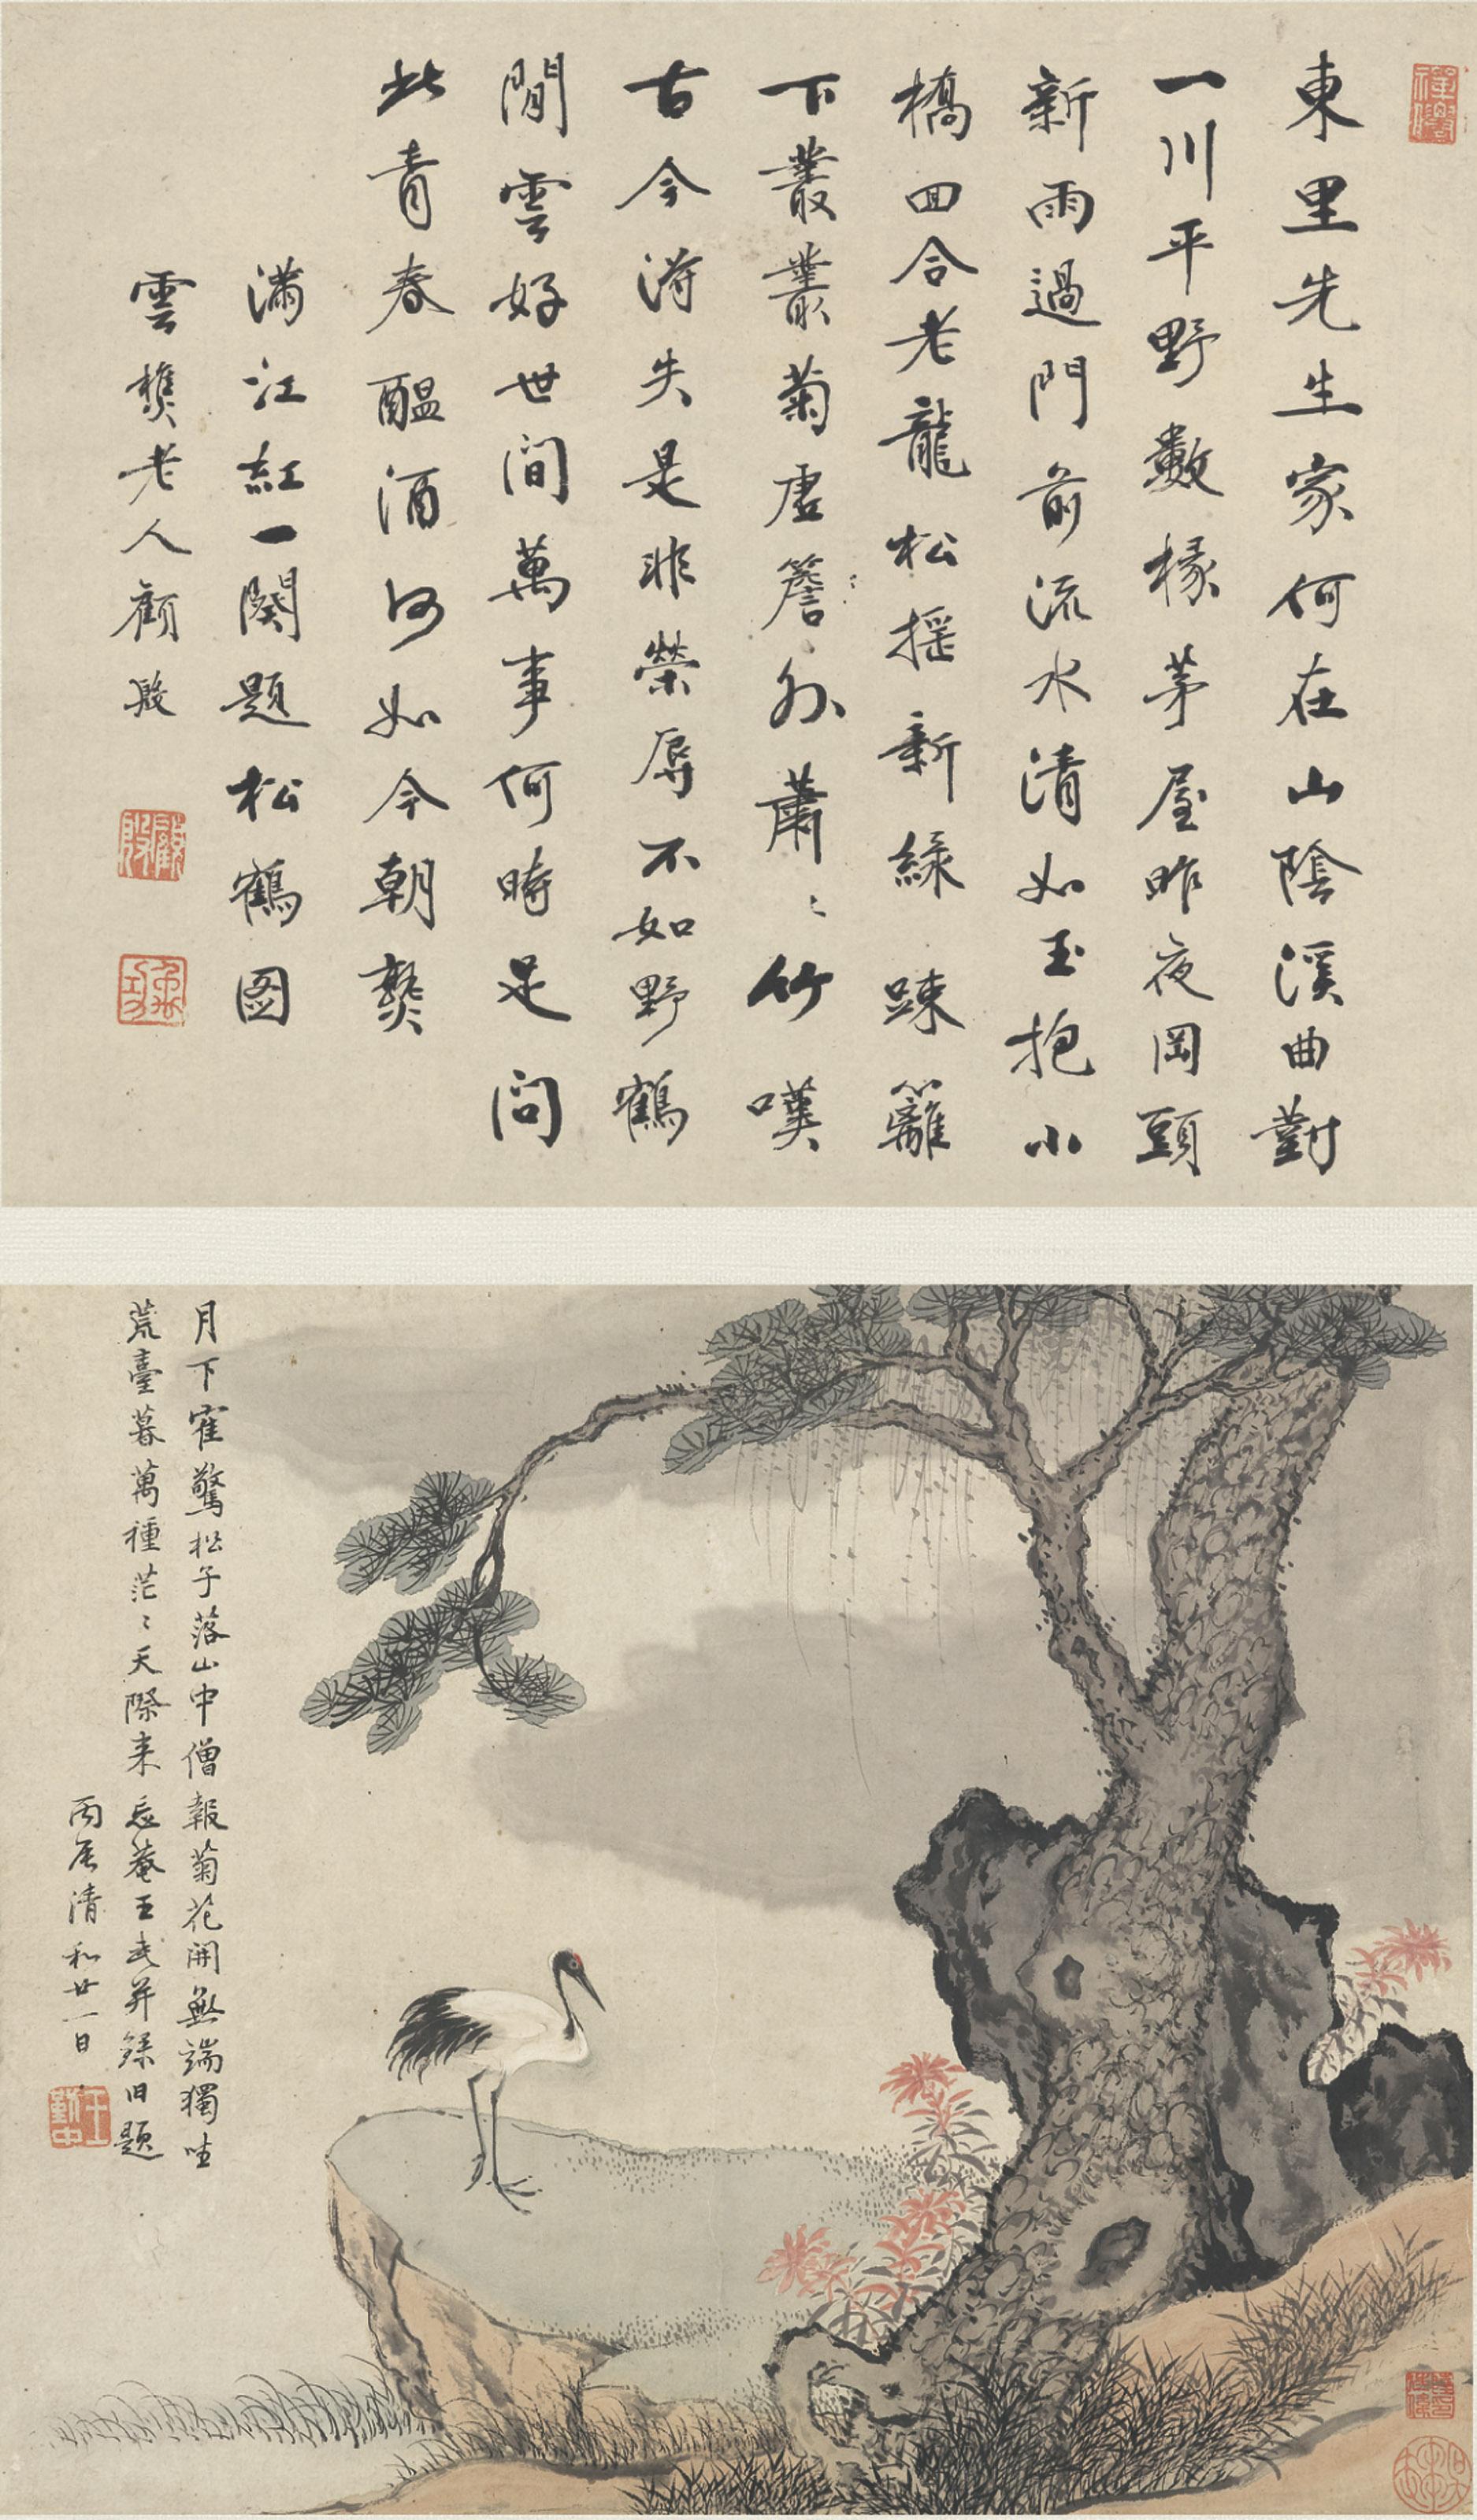 東里先生家何在山陰溪曲對
一川平野數椽茅屋昨夜岡頭
新雨過門前流水清如玉抱小
橋回合老龍松搖新綠 疎籬
下叢叢菊虛簷外蕭〻竹嘆
古今得失是非榮辱不如野鶴
閒雲好世間萬事何時足問
此青春醞酒何如今朝熟
滿江紅一闋題松鶴图
雲樵老人顧殷
顧殷
月下隺驚松子落山中僧報菊花開無端獨坐
荒臺暮萬種茫〻天際来 忘菴王武并録旧題
丙辰清和廿一日
王武
勤中